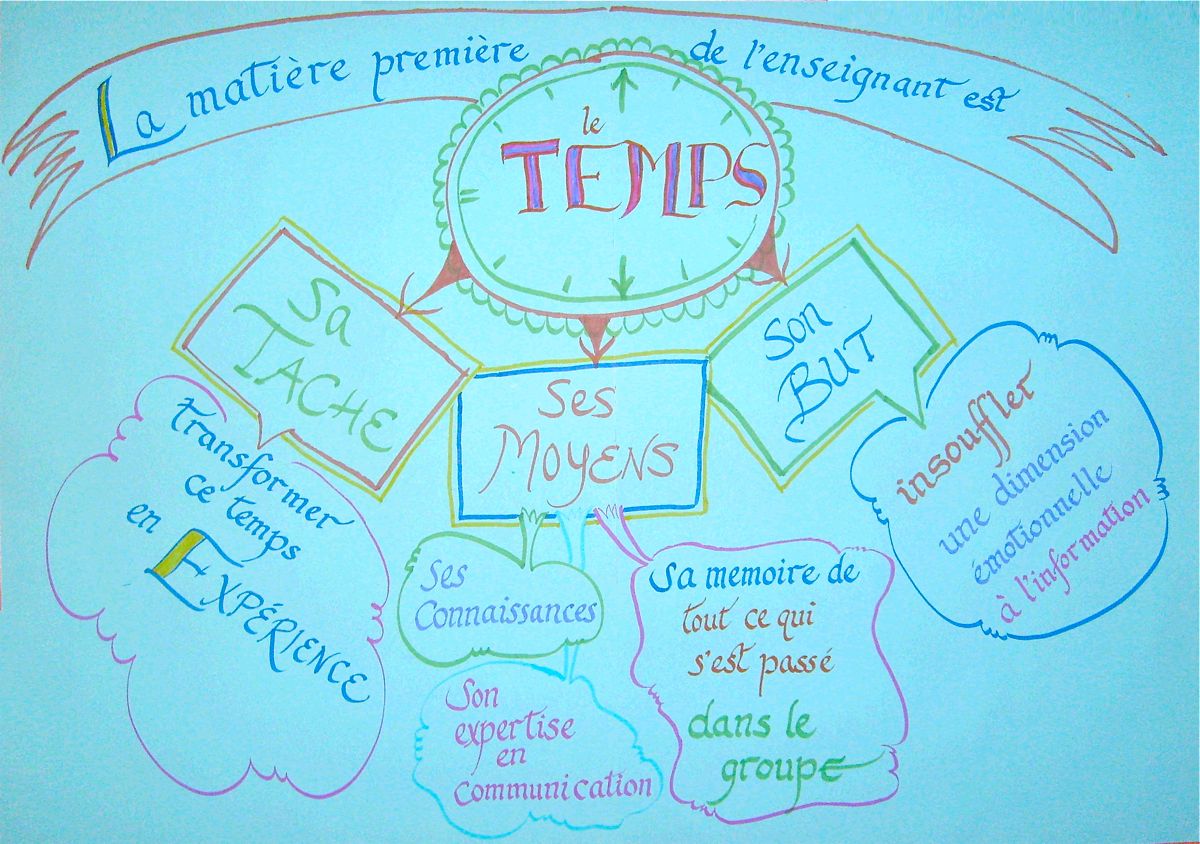 La matière première
de l'enseignant est
le
TEMPS
Sa
TACHE
Transformer
ce temps
en
EXPÉRIENCE
Ses
MOYENS
Ses
Connaissances
Son
expertise
en
communication
Sa memoire de
tout ce qui
s'est passé
dans le
groupe
Son
BUT
insouffler
une dimension
émotionnelle
à l'information